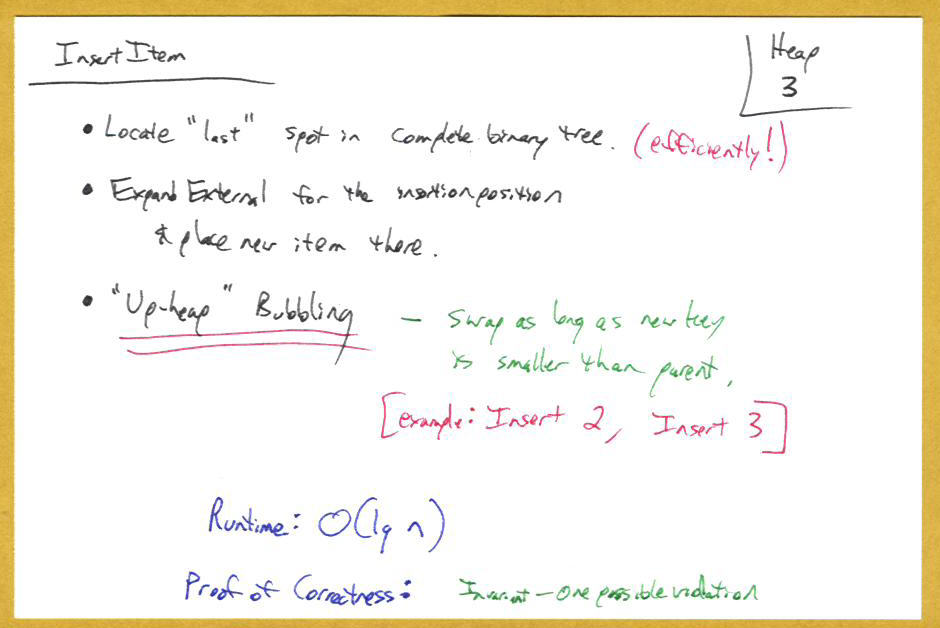 InsertItem
Heap
3
• Locate "last" spot in complete binary tree. (efficiently!)
• ExpandExternal for the insertion position
& place new item there.
• "Up-heap" Bubbling — swap as long as new key
is smaller than parent.
[example: Insert 2, Insert 3]
Runtime: O(lg n)
Proof of Correctness: Invariant — One possible violation